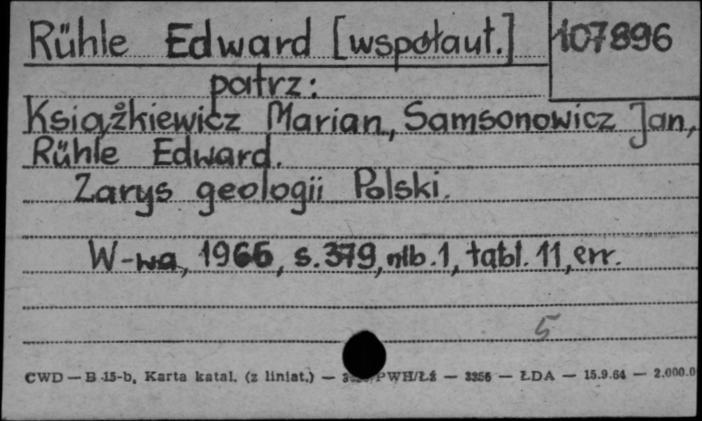 Rühle Edward [współaut.] 107896
patrz:
Książkiewicz Marian, Samsonowicz Jan,
Rühle Edward.
Zarys geologii Polski.
W-wa, 1965, s. 379, nlb. 1, tabl. 11, err.
5
CWD — B 15-b, Karta katal. (z liniat.) — PWH/Łż — 3356 — ŁDA — 15.9.64 — 2.000.0